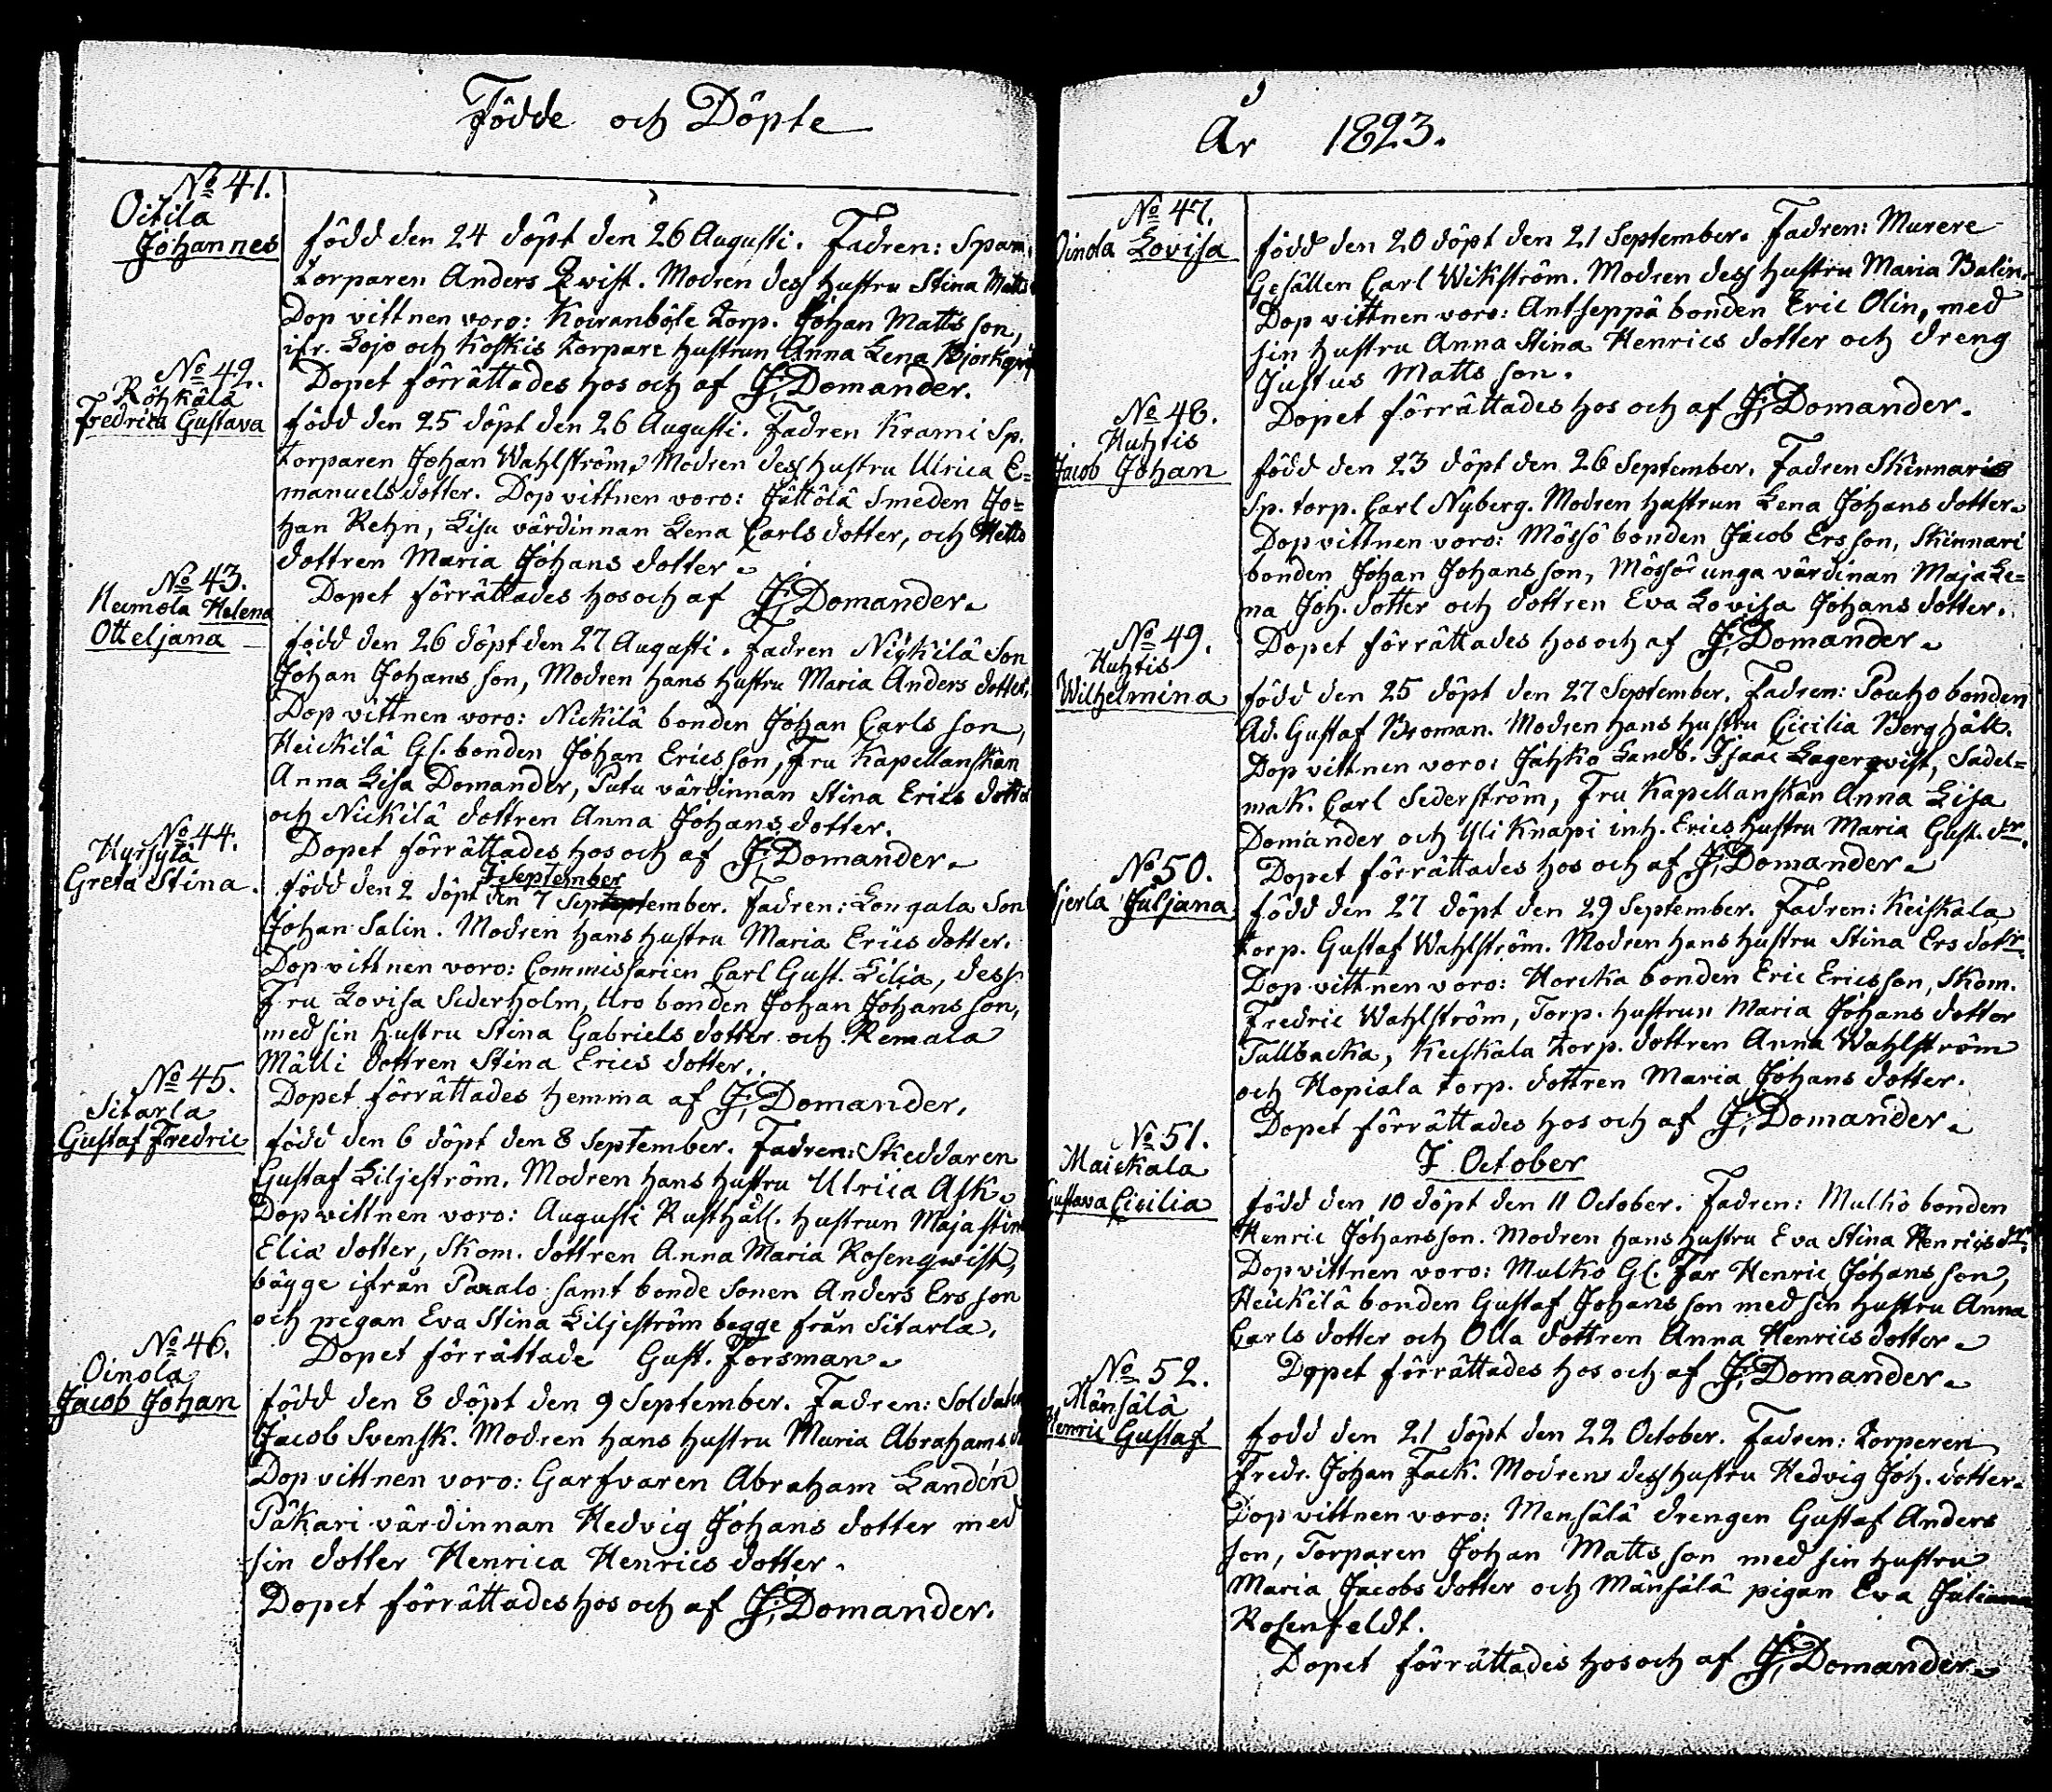 Födde och Döpte
No 41.
Oitila
Johannes
född den 24 döpt den 26 Augusti. Fadren: Spam.
torparen Anders Qwist. Modren dess hustru Stina Matts
Dop vittnen voro: Koiranböle torp. Johan Matts son,
ifr. Lojo och Koskis torpare hustrun Anna Lena Björkqvist
Dopet förrättades hos och af J. Domander.
No 42.
Röhkälä
Fredrica Gustava
född den 25 döpt den 26 Augusti. Fadren Krami Sp.
torparen Johan Wahlström, Modren dess hustru Ulrica E=
manuels dotter. Dop vittnen voro: Jättölä Smeden Jo=
han Rehn, Lisu värdinnan Lena Carls dotter, och
dottren Maria Johans dotter.
Dopet förrättades hos och af J. Domander.
No 43.
Heimola Helena
Otteljana
född den 26 döpt den 27 Augusti. Fadren Nickilä Son
Johan Johans son, Modren hans hustru Maria Anders dotter,
Dop vittnen voro: Nickilä bonden Johan Carls son,
Heickilä Gl. bonden Johan Ericsson, Fru Kapellanskan
Anna Lisa Domander, Putu värdinnan Stina Erics dotter
och Nickilä dottren Anna Johans dotter.
Dopet förrättades hos och af J. Domander.
I September
No 44.
Kyrsylä
Greta Stina.
född den 2 döpt den 7 September. Fadren: Longala Son
Johan Salin. Modren hans hustru Maria Erics dotter.
Dop vittnen voro: Commissarien Carl Gust. Lilja, dess
Fru Lovisa Sederholm, Uro bonden Johan Johans son,
med sin hustru Stina Gabriels dotter och Remala
Mälli dottren Stina Erics dotter.
Dopet förrättades hemma af J. Domander.
No 45.
Sitarla
Gustaf Fredric
född den 6 döpt den 8 September. Fadren: Skeddaren
Gustaf Liljeström. Modren hans hustru Ulrica Ask.
Dop vittnen voro: Augusti Rusthåll. hustrun Maja Stina
Elia dotter, Skom. dottren Anna Maria Rosenqwist,
bägge ifrån Paralo samt bonde sonen Anders Ers son
och pigan Eva Stina Liljeström begge från Sitarla.
Dopet förrättade Gust. Forsman.
No 46.
Oinola
Jacob Johan
född den 8 döpt den 9 September. Fadren: Soldaten
Jacob Svensk. Modren hans hustru Maria Abrahams d
Dop vittnen voro: Garfvaren Abraham Landén
Päkari värdinnan Hedvig Johans dotter med
sin dotter Henrica Henrics dotter.
Dopet förrättades hos och af J. Domander.
År 1823.
No 47.
Oinola Lovisa
född den 20 döpt den 21 September. Fadren: Murere
Gesällen Carl Wikström. Modren dess hustru Maria Balin.
Dop vittnen voro: Antseppä bonden Eric Olin, med
sin hustru Anna Stina Henrics dotter och dreng
Justus Matts son.
Dopet förrättades hos och af J. Domander.
No 48.
Huhtis
Jacob Johan
född den 23 döpt den 26 September. Fadren Skinnaris
Sp. torp. Carl Nyberg. Modren hustrun Lena Johans dotter.
Dop vittnen voro: Mössö bonden Jacob Ers son, Skinnari
bonden Johan Johans son, Mössö unga värdinan Maja Le=
na Joh. dotter och dottren Eva Lovisa Johans dotter.
Dopet förrättades hos och af J. Domander.
No 49.
Huhtis
Wilhelmina
född den 25 döpt den 27 September. Fadren: Poutho bonden
Ad. Gustaf Broman. Modren hans hustru Cicilia Berghäll.
Dop vittnen voro: Jätzko Landb. Isaac Lagerqvist, Sadel=
mak. Carl Sederström, Fru Kapellanskan Anna Lisa
Domander och Yli Knapi inh. Erics hustru Maria Gust. dr.
Dopet förrättades hos och af J. Domander.
No 50.
Hjerla Juljana
född den 27 döpt den 29 September. Fadren: Keiskala
torp. Gustaf Wahlström. Modren hans hustru Stina Ers dotr.
Dop vittnen voro: Horcka bonden Eric Ericsson, Skom.
Fredric Wahlström, Torp. hustrun Maria Johans dotter
Tallbacka, Keiskala torp. dottren Anna Wahlström
och Kopiala torp. dottren Maria Johans dotter.
Dopet förrättades hos och af J. Domander.
I October
No 51.
Maickala
Gustava Cicilia
född den 10 döpt den 11 October. Fadren: Mulko bonden
Henric Johansson. Modren hans hustru Eva Stina Henrics dr.
Dop vittnen voro: Mulko Gl. Far Henric Johans son,
Heickilä bonden Gustaf Johans son med sin hustru Anna
Carls dotter och Olla dottren Anna Henrics dotter.
Dopet förrättades hos och af J. Domander.
No 52.
Mänsälä
Henric Gustaf
född den 21 döpt den 22 October. Fadren: Torperen
Fredr. Johan Fack. Modren dess hustru Hedvig Joh. dotter.
Dop vittnen voro: Mensälä drengen Gustaf Anders
son, Torparen Johan Matts son med sin hustru
Maria Jacobs dotter och Mänsälä pigan Eva Juliana
Rosenfeldt.
Dopet förrättades hos och af J. Domander.